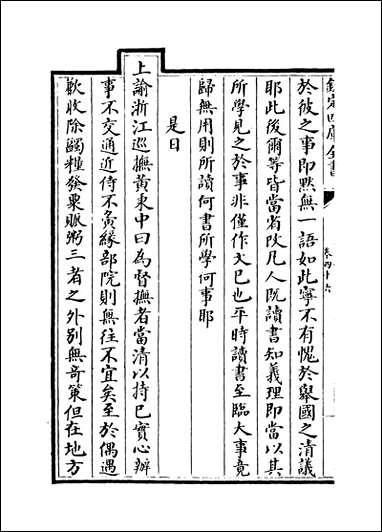 欽定四庫全書
卷四十六
於彼之事即黙無一語如此寧不有愧於舉國之清議
耶此後爾等皆當省改凡人既讀書知義理即當以其
所學見之於事非僅作文已也平時讀書至臨大事竟
歸無用則所讀何書所學何事耶
是日
上諭浙江巡撫黄秉中曰為督撫者當清以持已實心辦
事不交通近侍不夤緣部院則無往不宜矣至於偶遇
歉收除蠲糧發粟賑粥三者之外别無竒策但在地方